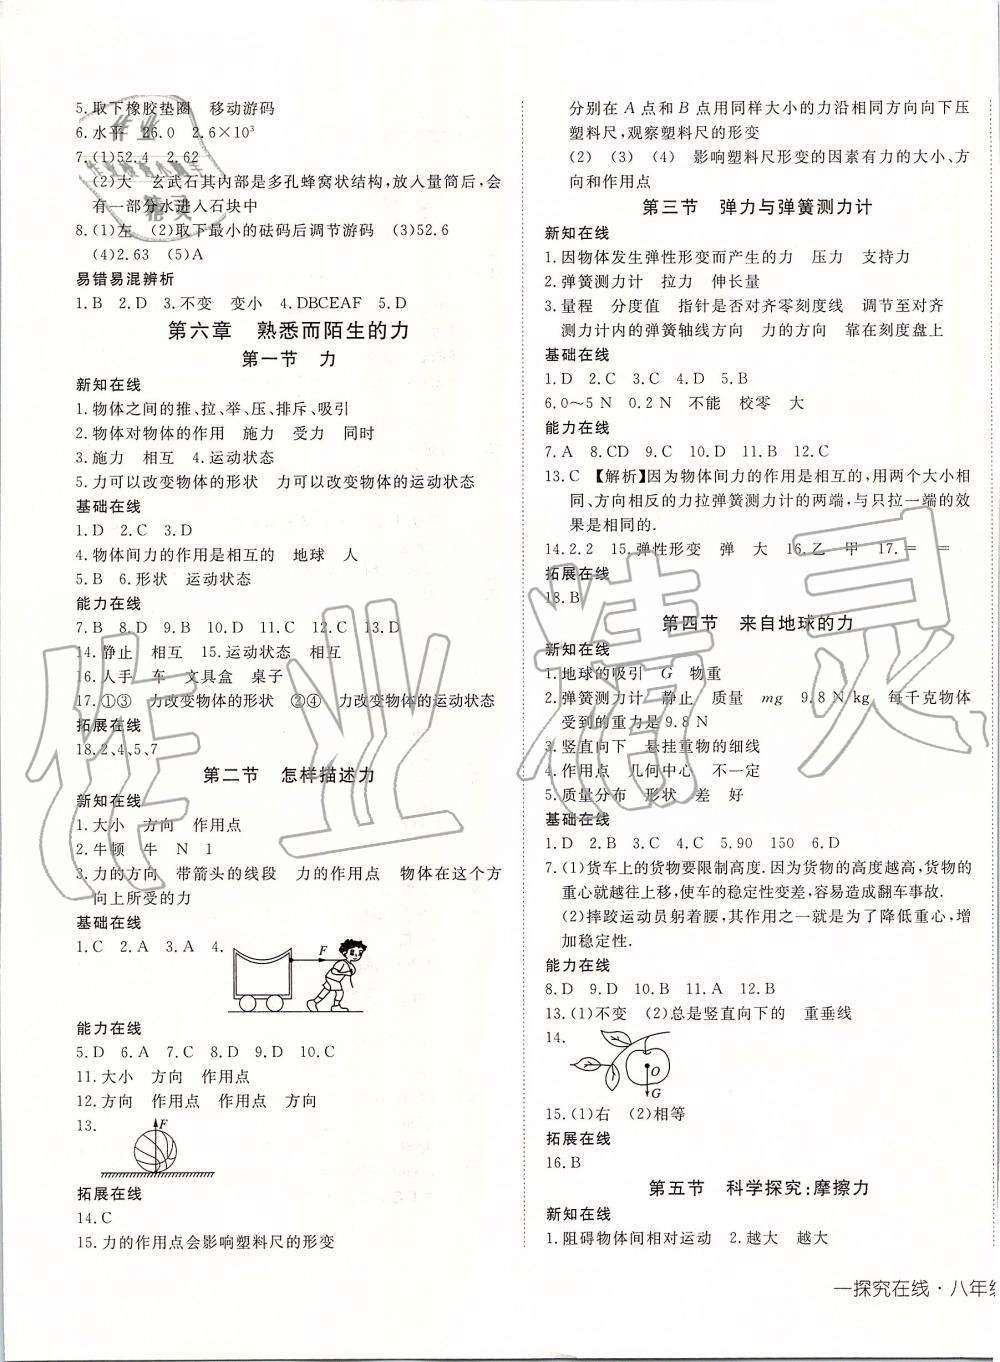 5.取下橡胶垫圈 移动游码
6.水平 26.0 2.6×10³
7.(1)52.4 2.62
(2)大 玄武石其内部是多孔蜂窝状结构,放入量筒后,会
有一部分水进入石块中
8.(1)左 (2)取下最小的砝码后调节游码 (3)52.6
(4)2.63 (5)A
易错易混辨析
1.B 2.D 3.不变 变小 4.DBCEAF 5.D
第六章 熟悉而陌生的力
第一节 力
新知在线
1.物体之间的推、拉、举、压、排斥、吸引
2.物体对物体的作用 施力 受力 同时
3.施力 相互 4.运动状态
5.力可以改变物体的形状 力可以改变物体的运动状态
基础在线
1.D 2.C 3.D
4.物体间力的作用是相互的 地球 人
5.B 6.形状 运动状态
能力在线
7.B 8.D 9.B 10.D 11.C 12.C 13.D
14.静止 相互 15.运动状态 相互
16.人手 车 文具盒 桌子
17.①③ 力改变物体的形状 ②④ 力改变物体的运动状态
拓展在线
18.2、4、5、7
第二节 怎样描述力
新知在线
1.大小 方向 作用点
2.牛顿 牛 N 1
3.力的方向 带箭头的线段 力的作用点 物体在这个方
向上所受的力
基础在线
1.C 2.A 3.A 4.
F
能力在线
5.D 6.A 7.C 8.D 9.D 10.C
11.大小 方向 作用点
12.方向 作用点 作用点 方向
13.
F
拓展在线
14.C
15.力的作用点会影响塑料尺的形变
分别在A点和B点用同样大小的力沿相同方向向下压
塑料尺,观察塑料尺的形变
(2) (3) (4) 影响塑料尺形变的因素有力的大小、方
向和作用点
第三节 弹力与弹簧测力计
新知在线
1.因物体发生弹性形变而产生的力 压力 支持力
2.弹簧测力计 拉力 伸长量
3.量程 分度值 指针是否对齐零刻度线 调节至对齐
测力计内的弹簧轴线方向 力的方向 靠在刻度盘上
基础在线
1.D 2.C 3.C 4.D 5.B
6.0～5 N 0.2 N 不能 校零 大
能力在线
7.A 8.CD 9.C 10.D 11.B 12.C
13.C 【解析】因为物体间力的作用是相互的,用两个大小相
同、方向相反的力拉弹簧测力计的两端,与只拉一端的效
果是相同的.
14.2.2 15.弹性形变 弹 大 16.乙 甲 17.= =
拓展在线
18.B
第四节 来自地球的力
新知在线
1.地球的吸引 G 物重
2.弹簧测力计 静止 质量 mg 9.8 N/kg 每千克物体
受到的重力是9.8 N
3.竖直向下 悬挂重物的细线
4.作用点 几何中心 不一定
5.质量分布 形状 差 好
基础在线
1.D 2.B 3.C 4.C 5.90 150 6.D
7.(1)货车上的货物要限制高度.因为货物的高度越高,货物的
重心就越往上移,使车的稳定性变差,容易造成翻车事故.
(2)摔跤运动员躬着腰,其作用之一就是为了降低重心,增
加稳定性.
能力在线
8.D 9.D 10.B 11.A 12.B
13.(1)不变 (2)总是竖直向下的 重垂线
14.
O
G
15.(1)右 (2)相等
拓展在线
16.B
第五节 科学探究:摩擦力
新知在线
1.阻碍物体间相对运动 2.越大 越大
一探究在线·八年级
作业精灵